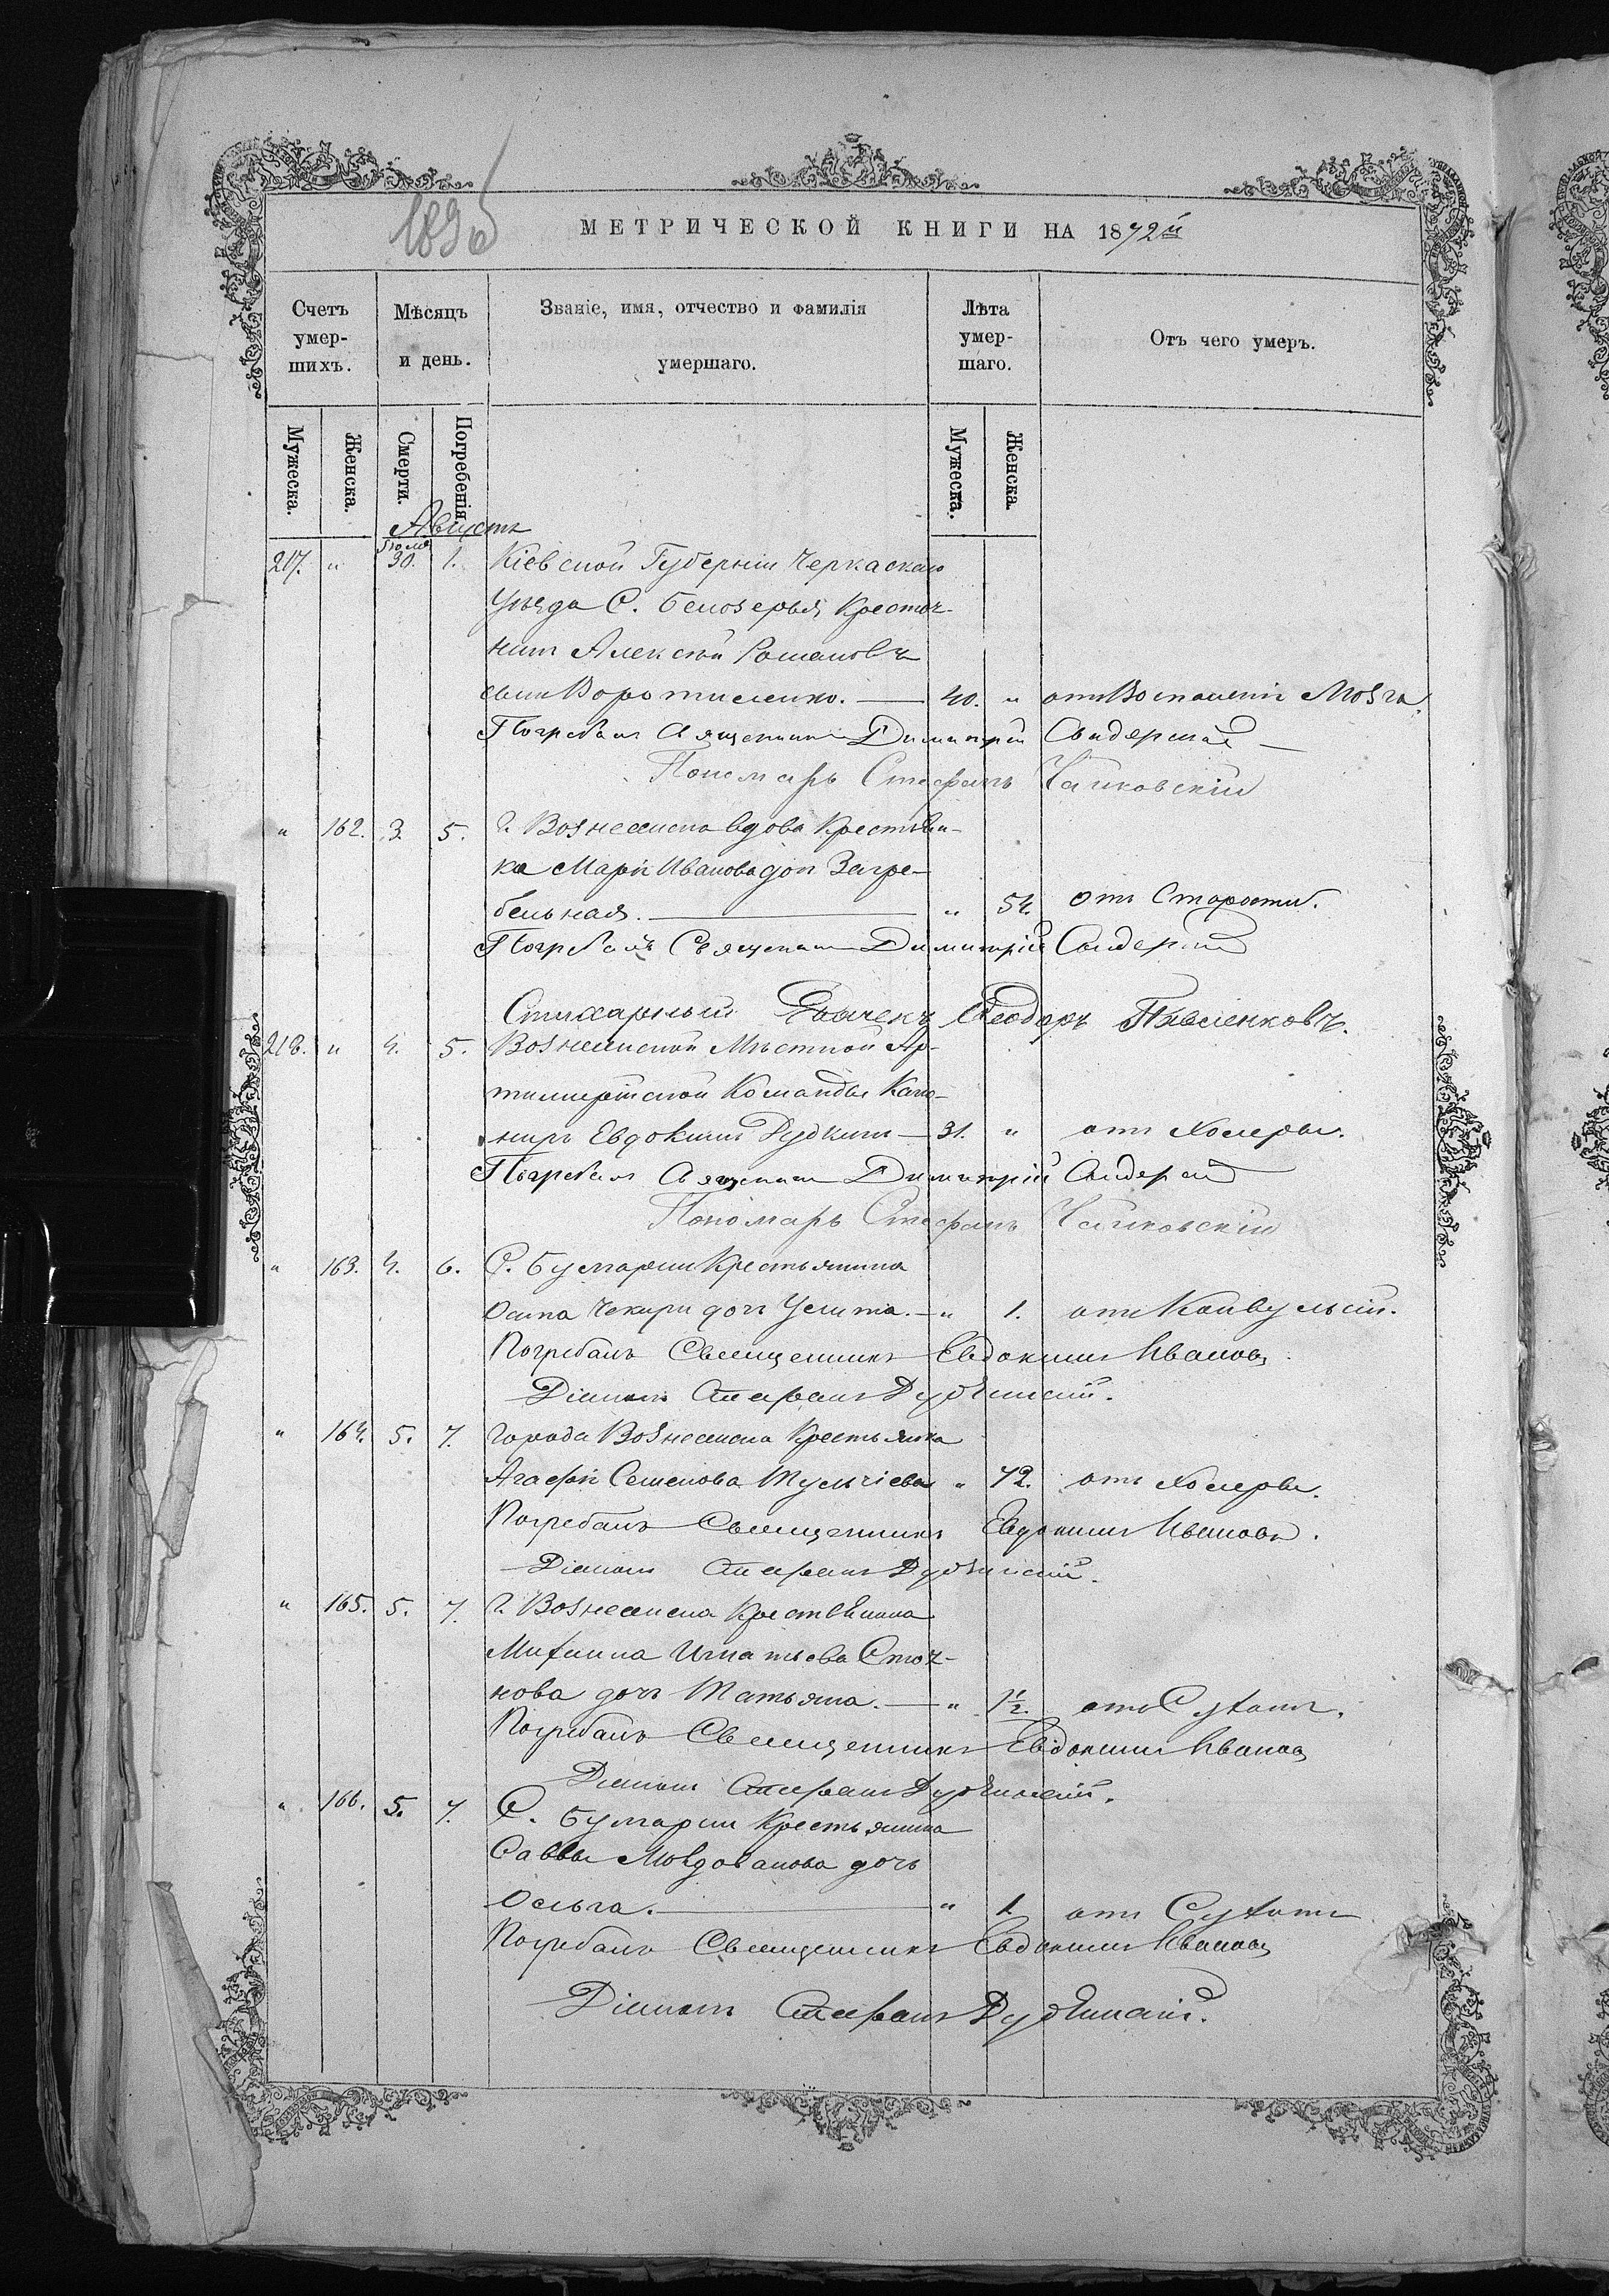 МЕТРИЧЕСКОЙ КНИГИ НА 1872й
Счетъ умер-шихъ.
Мѣсяцъ и день.
Званіе, имя, отчество и фамилія умершаго.
Лѣта умер-шаго.
Отъ чего умеръ.
Мужеска. Женска. Смерти. Погребенія. Мужеска. Женска.
Августъ
Іюля
217. " 30. 1. Кіевской Губерніи Черкаскаго
Уѣзда С. Белозерья Крестья-
нинъ Алексѣй Романовъ
сынъ Воротиленко. — 40. " отъ Воспаленія Мозга.
Погребалъ Священникъ Димитрій Свидерскій
Пономарь Стефанъ Чайковскій
" 162. 3. 5. г. Вознесенска вдова Крестьян-
ка Марія Иванова доч Загре-
бельная. — " 54. отъ Старости.
Погребалъ Священникъ Димитрій Свидерскій
Стихарный Дьячекъ Ѳеодоръ Павленковъ.
218. " 4. 5. Вознесенской Мѣстной Ар-
тилерійской Команды Кано-
ниръ Евдокимъ Рудкинъ — 31. " отъ Холеры.
Погребалъ Священникъ Димитрій Свидерскій
Пономарь Стефанъ Чайковскій
" 163. 4. 6. С. Булгарки Крестьянина
Осипа Чекири доч Улита. — " 1. отъ Конвульсій.
Погребалъ Священникъ Евдокимъ Ивановъ.
Діаконъ Стефанъ Дубинскій.
" 164. 5. 7. Города Вознесенска Крестьянка
Агафія Семенова Тульчіева " 72. отъ Холеры.
Погребалъ Священникъ Евдокимъ Ивановъ.
Діаконъ Стефанъ Дубинскій.
" 165. 5. 7. г. Вознесенска Крестьянина
Михаила Игнатьева Стоя-
нова доч Татьяна. — " 1½. отъ Сухотъ.
Погребалъ Священникъ Евдокимъ Ивановъ
Діаконъ Стефанъ Дубинскій.
" 166. 5. 7. С. Булгарки Крестьянина
Саввы Молдованова дочь
Ольга. — " 1. отъ Сухотъ
Погребалъ Священникъ Евдокимъ Ивановъ
Діаконъ Стефанъ Дубинскій.